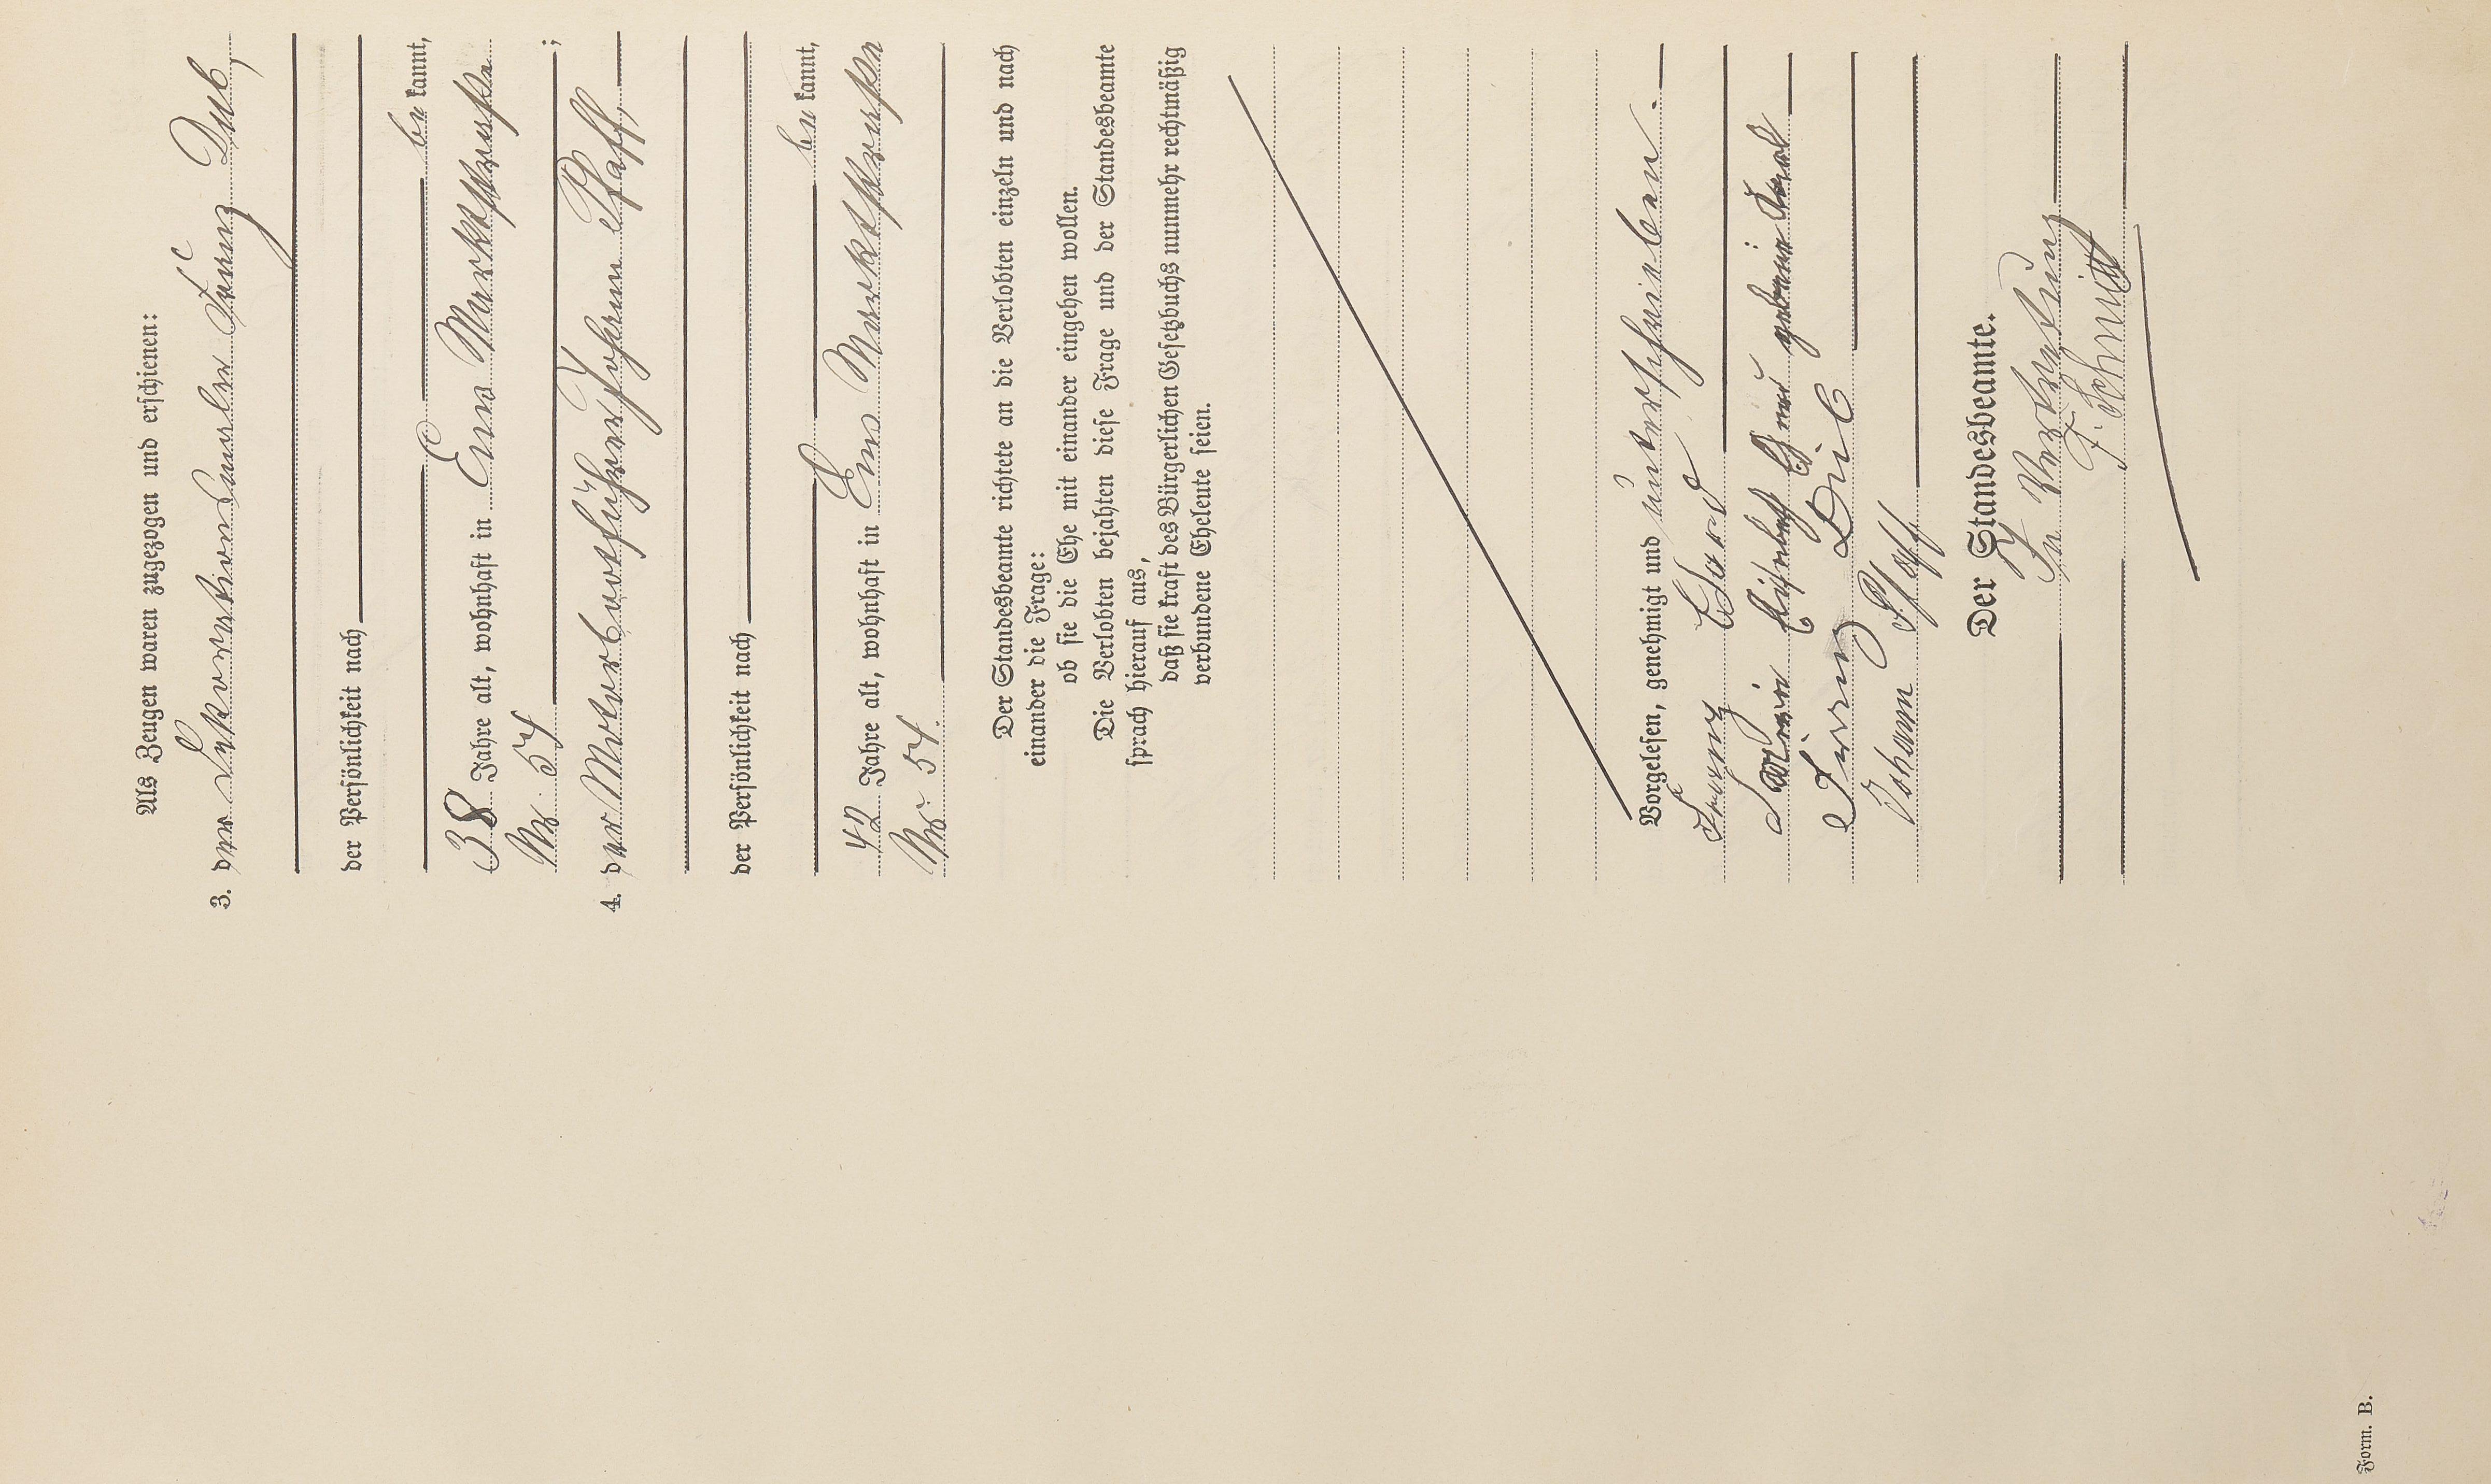 Als Zeugen waren zugezogen und erschienen:
3. der Dekorationsmaler Franz Dub,
der Persönlichkeit nach
be kannt,
38 Jahre alt, wohnhaft in Ems Marktstraße
Nr. 54 ;
4. der Motorbootführer Johann Pfaff,
der Persönlichkeit nach
be kannt,
42 Jahre alt, wohnhaft in Ems Marktstraße
Nr. 54.
Der Standesbeamte richtete an die Verlobten einzeln und nach
einander die Frage:
ob sie die Ehe mit einander eingehen wollen.
Die Verlobten bejahten diese Frage und der Standesbeamte
sprach hierauf aus,
daß sie kraft des Bürgerlichen Gesetzbuchs nunmehr rechtmäßig
verbundene Eheleute seien.
Vorgelesen, genehmigt und unterschrieben.
Franz
geborne
Franz Dub
Johann Pfaff
Der Standesbeamte.
In Vertretung
F. Schmitt
Form. B.